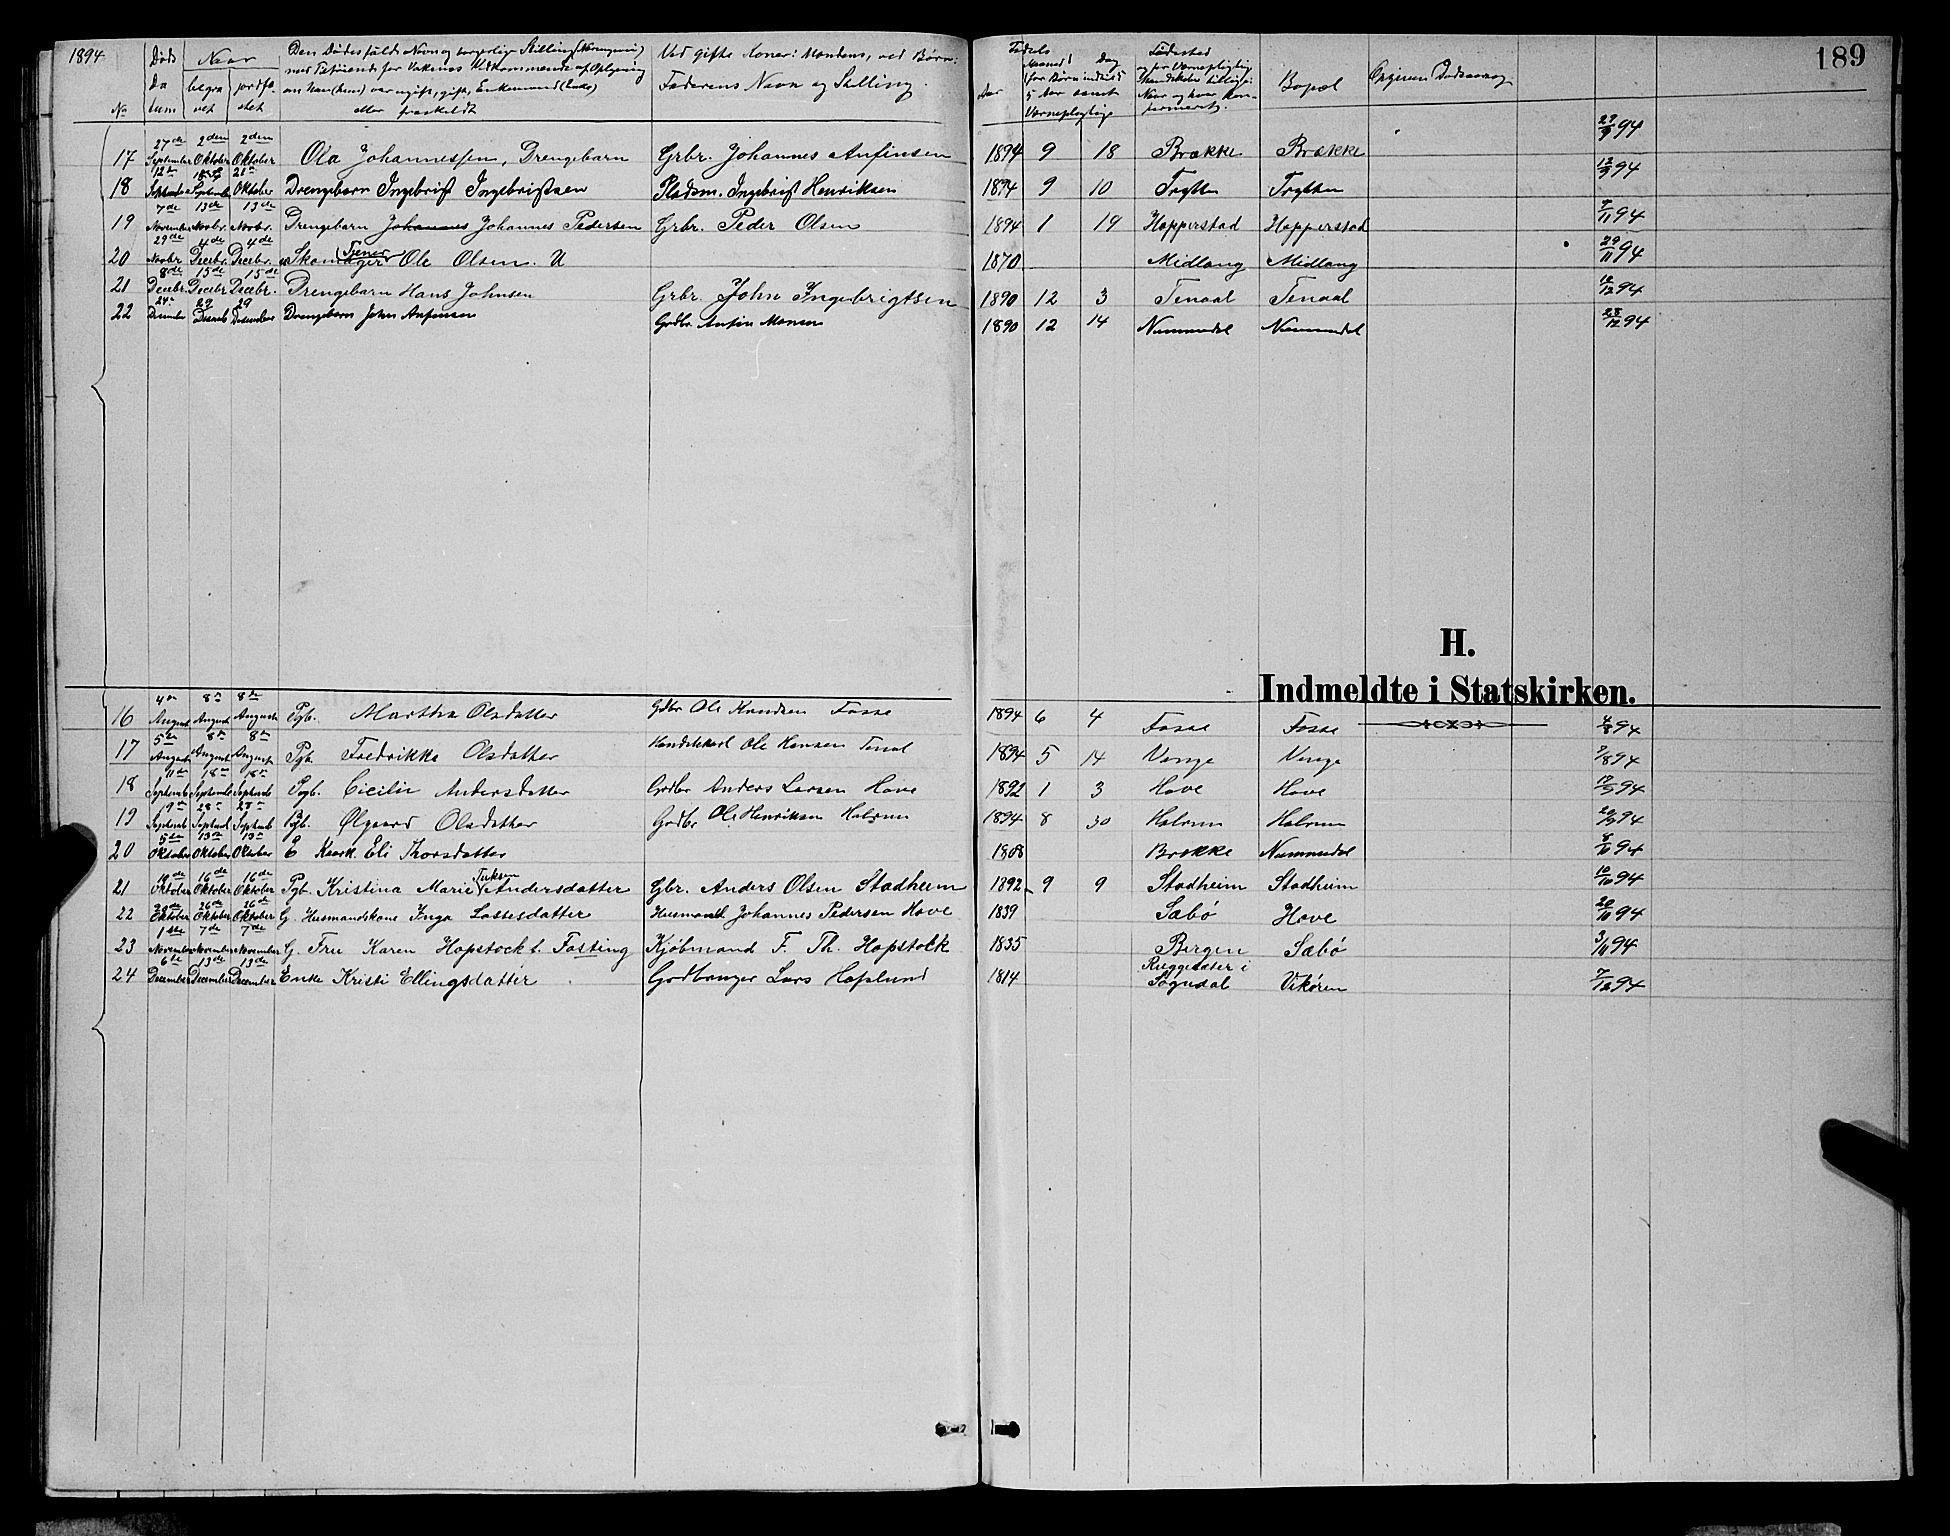 1894
189
Døds Datum
Naar
begravet
jordfæstet
No
Den Dødes fulde Navn og borgerlige Stilling (Næringsvei)
om han (hun) var ugift, gift, Enkemand (Enke)
eller fraskildt
Ved gifte Koner: Mandens, ved Børn:
Faderens Navn og Stilling.
Aar
Fødsels
Maaned
Dag
(for Børn indtil
5 Aar samt
Værnepligtige
Fødested
og for Værnepligtig
Mandskaber tillige
Naar og hvor kon-
firmeret.
Bopæl
Opgiven Dødsaarsag
17 27de September 2den Oktober 2den Oktober Ola Johannessen, Drengebarn Grbr. Johannes Anfinsen 1894 9 18 Brække Brække 94
18 12te September September 21de Oktober Drengebarn Ingebrigt Ingebrigtsen Pladsm. Ingebrigt Henriksen 1894 9 10 Trytten Trytten 94
19 7de November 13de Novbr. 13de Novbr. Drengebarn Johannes Johannes Pedersen Grbr. Peder Olsen 1894 1 19 Hopperstad Hopperstad 9/11 94
20 29de Novbr 4de Decbr. 4de Decbr. Skomager Tjener Ole Olsen. U 1870 Midlang Midlang 29/11 94
21 8de Decbr. 15de Decbr 15de Decbr. Drengebarn Hans Johnsen Grbr. John Ingebrigtsen 1890 12 3 Tenaal Tenaal 10/12 94
22 24 December 29 29 December Drengebarn John Anfinsen Grdbr. Anfin Monsen 1890 12 14 Nummedal Nummedal 28/12 94
H.
Indmeldte i Statskirken.
16 4de August 8de August 8de August Pgb. Martha Olsdatter Gdbr Ole Knudsen Fosse 1894 6 4 Fosse Fosse 94
17 5te August 8de August 8de August Pgb. Fredrikke Olsdatter Handelskarl Ole Hansen Tenal 1894 5 14 Vange Vange 7/8 94
18 11te Septemb 18de Septemb 18de Septemb Pgb. Cicilie Andersdatter Grdbr Anders Larsen Hove 1892 1 3 Hove Hove 94
19 19de Septemb 28de Septemb 28de Septemb Pgb. Olgaard Olsdatter Gardbr Ole Henriksen Halsrun 1894 8 30 Halsrun Halsrun 94
20 5te Oktober 13de Oktober 13de Oktober E Kaark. Eli Thorsdatter 1808 Brække Nummedal 94
21 10de Oktober 16de Oktober 16de Oktober Pgb. Kristina Marie Tuksen Andersdatter Gbr. Anders Olsen Stadheim 1892 9 9 Stadheim Stadheim 10/10 94
22 20de Oktober 26de Oktober 26de Oktober G. Husmandskone Inga Lassesdatter Husmand Johannes Pedersen Hove 1839 Sæbø Hove 94
23 1ste November 7de November 7de November G. Frue Karen Hopstock f. Fasting Kjøbmand F. Th. Hopstock 1835 Bergen Sæbø 3/11 94
24 6te December 13de December 13de December Enke Kristi Ellingsdatter Gardbruger Lars Hoplund 1814 Sogndal Vikøren 7/12 94